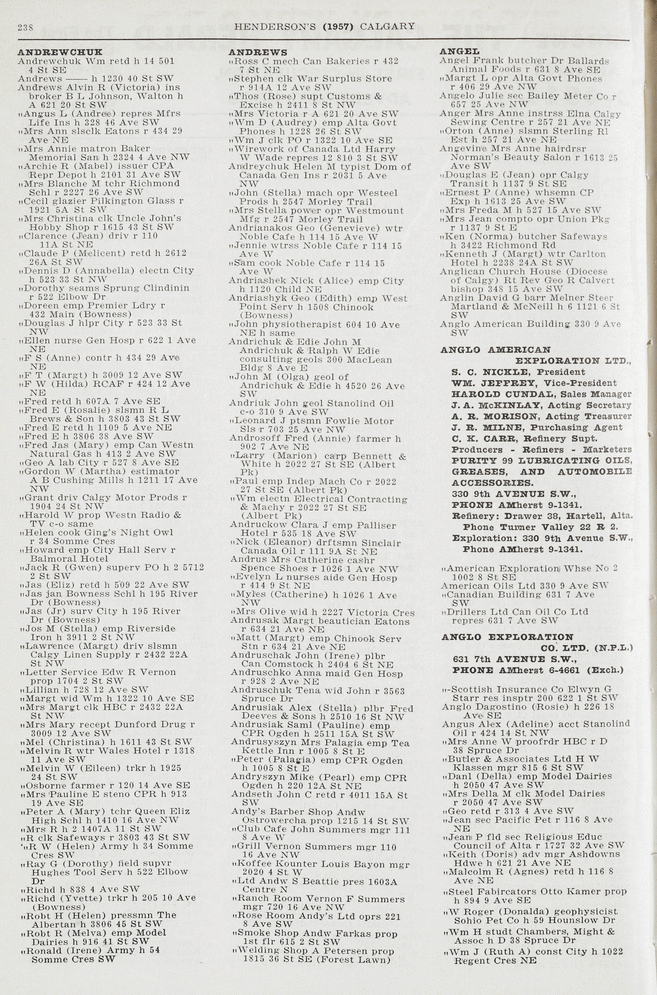 238
HENDERSON'S (1957) CALGARY
ANDREWCHUK
Andrewchuk Wm retd h 14 501
4 St SE
Andrews —— h 1230 40 St SW
Andrews Alvin R (Victoria) ins
broker B L Johnson, Walton h
A 621 20 St SW
„Angus L (Andree) repres Mfrs
Life Ins h 328 46 Ave SW
„Mrs Ann slsclk Eatons r 434 29
Ave NE
„Mrs Annie matron Baker
Memorial San h 2324 4 Ave NW
„Archie R (Mabel) issuer CPA
Repr Depot h 2101 31 Ave SW
„Mrs Blanche M tchr Richmond
Schl r 2227 26 Ave SW
„Cecil glazier Pilkington Glass r
1921 5A St SW
„Mrs Christina clk Uncle John's
Hobby Shop r 1615 43 St SW
„Clarence (Jean) driv r 110
11A St NE
„Claude P (Melicent) retd h 2612
26A St SW
„Dennis D (Annabella) electn City
h 523 33 St NW
„Dorothy seams Sprung Clindinin
r 522 Elbow Dr
„Doreen emp Premier Ldry r
432 Main (Bowness)
„Douglas J hlpr City r 523 33 St
NW
„Ellen nurse Gen Hosp r 622 1 Ave
NE
„F S (Anne) contr h 434 29 Ave
NE
„F T (Margt) h 3009 12 Ave SW
„F W (Hilda) RCAF r 424 12 Ave
NE
„Fred retd h 607A 7 Ave SE
„Fred E (Rosalie) slsmn R L
Brews & Son h 3803 43 St SW
„Fred E retd h 1109 5 Ave NE
„Fred E h 3806 38 Ave SW
„Fred Jas (Mary) emp Can Westn
Natural Gas h 413 2 Ave SW
„Geo A lab City r 527 8 Ave SE
„Gordon W (Martha) estimator
A B Cushing Mills h 1211 17 Ave
NW
„Grant driv Calgy Motor Prods r
1904 24 St NW
„Harold W prop Westn Radio &
TV c-o same
„Helen cook Ging's Night Owl
r 34 Somme Cres
„Howard emp City Hall Serv r
Balmoral Hotel
„Jack R (Gwen) superv PO h 2 5712
2 St SW
„Jas (Eliz) retd h 509 22 Ave SW
„Jas jan Bowness Schl h 195 River
Dr (Bowness)
„Jas (Jr) surv City h 195 River
Dr (Bowness)
„Jos M (Stella) emp Riverside
Iron h 3911 2 St NW
„Lawrence (Margt) driv slsmn
Calgy Linen Supply r 2432 22A
St NW
„Letter Service Edw R Vernon
prop 1704 2 St SW
„Lillian h 728 12 Ave SW
„Margt wid Wm h 1322 10 Ave SE
„Mrs Margt clk HBC r 2432 22A
St NW
„Mrs Mary recept Dunford Drug r
3009 12 Ave SW
„Mel (Christina) h 1611 43 St SW
„Melvin R wtr Wales Hotel r 1318
11 Ave SW
„Melvin W (Eileen) trkr h 1925
24 St SW
„Osborne farmer r 120 14 Ave SE
„Mrs Pauline E steno CPR h 913
19 Ave SE
„Peter A (Mary) tchr Queen Eliz
High Schl h 1410 16 Ave NW
„Mrs R h 2 1407A 11 St SW
„R clk Safeways r 3803 43 St SW
„R W (Helen) Army h 34 Somme
Cres SW
„Ray G (Dorothy) field supvr
Hughes Tool Serv h 522 Elbow
Dr
„Richd h 838 4 Ave SW
„Richd (Yvette) trkr h 205 10 Ave
(Bowness)
„Robt H (Helen) pressmn The
Albertan h 3806 45 St SW
„Robt R (Melva) emp Model
Dairies h 916 41 St SW
„Ronald (Irene) Army h 54
Somme Cres SW
ANDREWS
„Ross C mech Can Bakeries r 432
7 St NE
„Stephen clk War Surplus Store
r 914A 12 Ave SW
„Thos (Rose) supt Customs &
Excise h 2411 8 St NW
„Mrs Victoria r A 621 20 Ave SW
„Wm D (Audrey) emp Alta Govt
Phones h 1228 26 St SW
„Wm J clk PO r 1322 10 Ave SE
„Wirework of Canada Ltd Harry
W Wade repres 12 810 3 St SW
Andreychuk Helen M typist Dom of
Canada Gen Ins r 2031 5 Ave
NW
„John (Stella) mach opr Westeel
Prods h 2547 Morley Trail
„Mrs Stella power opr Westmount
Mfg r 2547 Morley Trail
Andrianakos Geo (Genevieve) wtr
Noble Cafe h 114 15 Ave W
„Jennie wtrss Noble Cafe r 114 15
Ave W
„Sam cook Noble Cafe r 114 15
Ave W
Andriashek Nick (Alice) emp City
h 1120 Child NE
Andriashyk Geo (Edith) emp West
Point Serv h 1508 Chinook
(Bowness)
„John physiotherapist 604 10 Ave
NE h same
Andrichuk & Edie John M
Andrichuk & Ralph W Edie
consulting geols 300 MacLean
Bldg 8 Ave E
„John M (Olga) geol of
Andrichuk & Edie h 4520 26 Ave
SW
Andriuk John geol Stanolind Oil
c-o 310 9 Ave SW
„Leonard J ptsmn Fowlie Motor
Sls r 703 25 Ave NW
Androsoff Fred (Annie) farmer h
902 7 Ave NE
„Larry (Marion) carp Bennett &
White h 2022 27 St SE (Albert
Pk)
„Paul emp Indep Mach Co r 2022
27 St SE (Albert Pk)
„Wm electn Electrical Contracting
& Machy r 2022 27 St SE
(Albert Pk)
Andruckow Clara J emp Palliser
Hotel r 535 18 Ave SW
„Nick (Eleanor) drftsmn Sinclair
Canada Oil r 111 9A St NE
Andrus Mrs Catherine cashr
Spence Shoes r 1026 1 Ave NW
„Evelyn L nurses aide Gen Hosp
r 414 9 St NE
„Myles (Catherine) h 1026 1 Ave
NW
„Mrs Olive wid h 2227 Victoria Cres
Andrusak Margt beautician Eatons
r 634 21 Ave NE
„Matt (Margt) emp Chinook Serv
Stn r 634 21 Ave NE
Andruschak John (Irene) plbr
Can Comstock h 2404 6 St NE
Andruschko Anna maid Gen Hosp
r 928 2 Ave NE
Andruschuk Tena wid John r 3563
Spruce Dr
Andrusiak Alex (Stella) plbr Fred
Deeves & Sons h 2510 16 St NW
Andrusiak Saml (Pauline) emp
CPR Ogden h 2511 15A St SW
Andrusyszyn Mrs Palagia emp Tea
Kettle Inn r 1005 8 St E
„Peter (Palagia) emp CPR Ogden
h 1005 8 St E
Andryszyn Mike (Pearl) emp CPR
Ogden h 220 12A St NE
Andseth John C retd r 4011 15A St
SW
Andy's Barber Shop Andw
Ostrowercha prop 1215 14 St SW
„Club Cafe John Summers mgr 111
8 Ave W
„Grill Vernon Summers mgr 110
16 Ave NW
„Koffee Kounter Louis Bayon mgr
2020 4 St W
„Ltd Andw S Beattie pres 1603A
Centre N
„Ranch Room Vernon F Summers
mgr 720 16 Ave NW
„Rose Room Andy's Ltd oprs 221
8 Ave SW
„Smoke Shop Andw Farkas prop
1st flr 615 2 St SW
„Welding Shop A Petersen prop
1815 36 St SE (Forest Lawn)
ANGEL
Angel Frank butcher Dr Ballards
Animal Foods r 631 8 Ave SE
„Margt L opr Alta Govt Phones
r 406 29 Ave NW
Angelo Julie sec Bailey Meter Co r
657 25 Ave NW
Anger Mrs Anne instrss Elna Calgy
Sewing Centre r 257 21 Ave NE
„Orton (Anne) slsmn Sterling Rl
Est h 257 21 Ave NE
Angevine Mrs Anne hairdrsr
Norman's Beauty Salon r 1613 25
Ave SW
„Douglas E (Jean) opr Calgy
Transit h 1137 9 St SE
„Ernest P (Anne) whsemn CP
Exp h 1613 25 Ave SW
„Mrs Freda M h 527 15 Ave SW
„Mrs Jean compto opr Union Pkg
r 1137 9 St E
„Ken (Norma) butcher Safeways
h 3422 Richmond Rd
„Kenneth J (Margt) wtr Carlton
Hotel h 2238 24A St SW
Anglican Church House (Diocese
of Calgy) Rt Rev Geo R Calvert
bishop 348 15 Ave SW
Anglin David G barr Melner Steer
Martland & McNeill h 6 1121 6 St
SW
Anglo American Building 330 9 Ave
SW
ANGLO AMERICAN
EXPLORATION LTD.,
S. C. NICKLE, President
WM. JEFFREY, Vice-President
HAROLD CUNDAL, Sales Manager
J. A. McKINLAY, Acting Secretary
A. R. MORISON, Acting Treasurer
J. R. MILNE, Purchasing Agent
C. K. CARR, Refinery Supt.
Producers - Refiners - Marketers
PURITY 99 LUBRICATING OILS,
GREASES, AND AUTOMOBILE
ACCESSORIES.
330 9th AVENUE S.W.,
PHONE AMherst 9-1341.
Refinery: Drawer 38, Hartell, Alta.
Phone Turner Valley 22 R 2.
Exploration: 330 9th Avenue S.W.,
Phone AMherst 9-1341.
„American Exploration Whse No 2
1002 8 St SE
American Oils Ltd 330 9 Ave SW
„Canadian Building 631 7 Ave
SW
„Drillers Ltd Can Oil Co Ltd
repres 631 7 Ave SW
ANGLO EXPLORATION
CO. LTD. (N.P.L.)
631 7th AVENUE S.W.,
PHONE AMherst 6-4661 (Exch.)
„Scottish Insurance Co Elwyn G
Starr res insptr 200 622 1 St SW
Anglo Dagostino (Rosie) h 226 18
Ave SE
Angus Alex (Adeline) acct Stanolind
Oil r 424 14 St NW
„Mrs Anne W proofrdr HBC r D
38 Spruce Dr
„Butler & Associates Ltd H W
Klassen mgr 815 6 St SW
„Danl (Della) emp Model Dairies
h 2050 47 Ave SW
„Mrs Della M clk Model Dairies
r 2050 47 Ave SW
„Geo retd r 313 4 Ave SW
„Jean sec Pacific Pet r 116 8 Ave
NE
„Jean P fld sec Religious Educ
Council of Alta r 1727 32 Ave SW
„Keith (Doris) adv mgr Ashdowns
Hdwe h 621 21 Ave NE
„Malcolm R (Agnes) retd h 116 8
Ave NE
„Steel Fabircators Otto Kamer prop
h 894 9 Ave SE
„W Roger (Donalda) geophysicist
Sohio Pet Co h 59 Hounslow Dr
„Wm H studt Chambers, Might &
Assoc h D 38 Spruce Dr
„Wm J (Ruth A) const City h 1022
Regent Cres NE